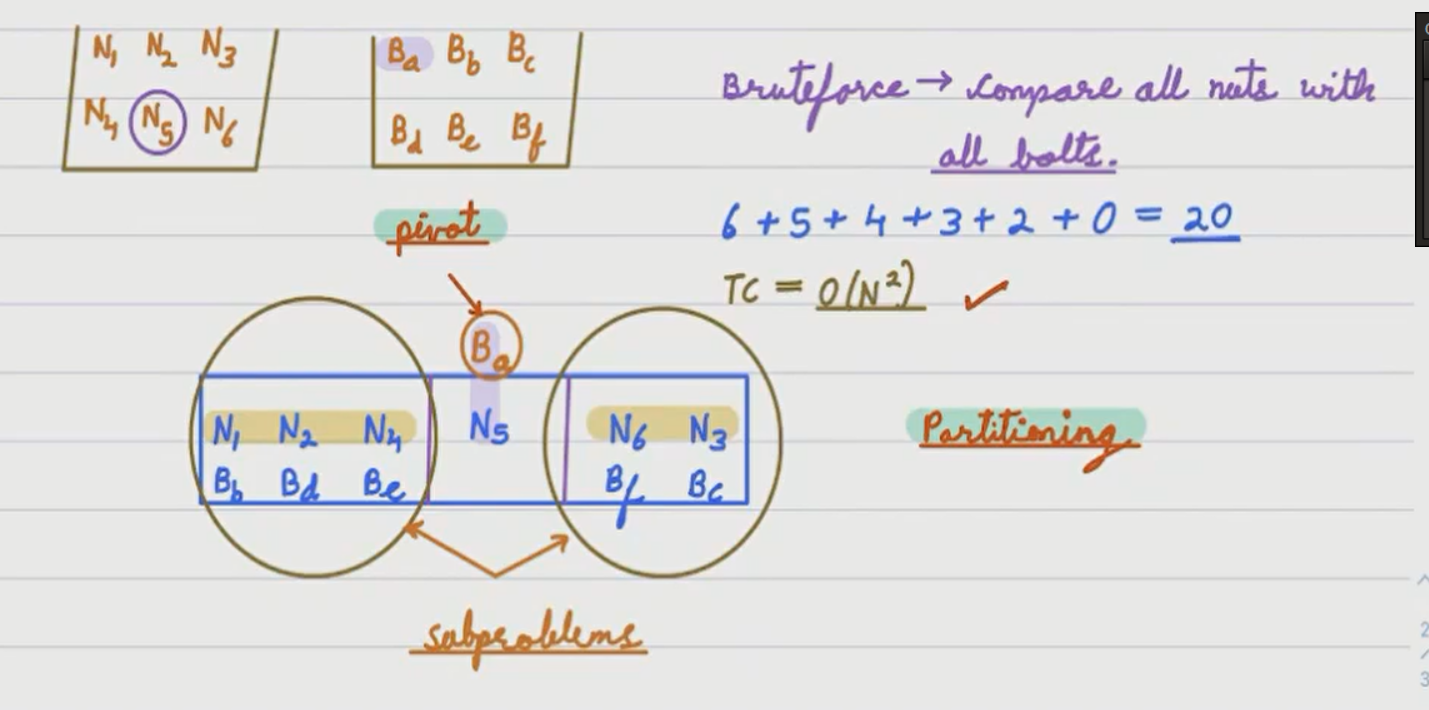 N₁ N₂ N₃
N₄ N₅ N₆
Ba Bb Bc
Bd Be Bf
Bruteforce → Compare all nuts with
all bolts.
6 + 5 + 4 + 3 + 2 + 0 = 20
TC = O(N²) ✓
pivot
Ba
N₁ N₂ N₄ N₅ N₆ N₃
Bb Bd Be Bf Bc
Partitioning
subproblems
2
3